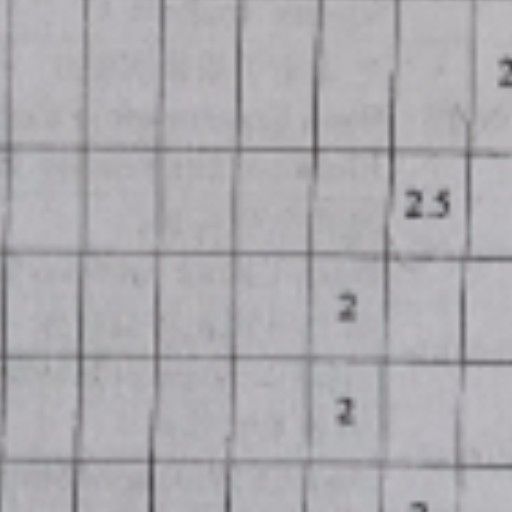 2
2.5
2
2